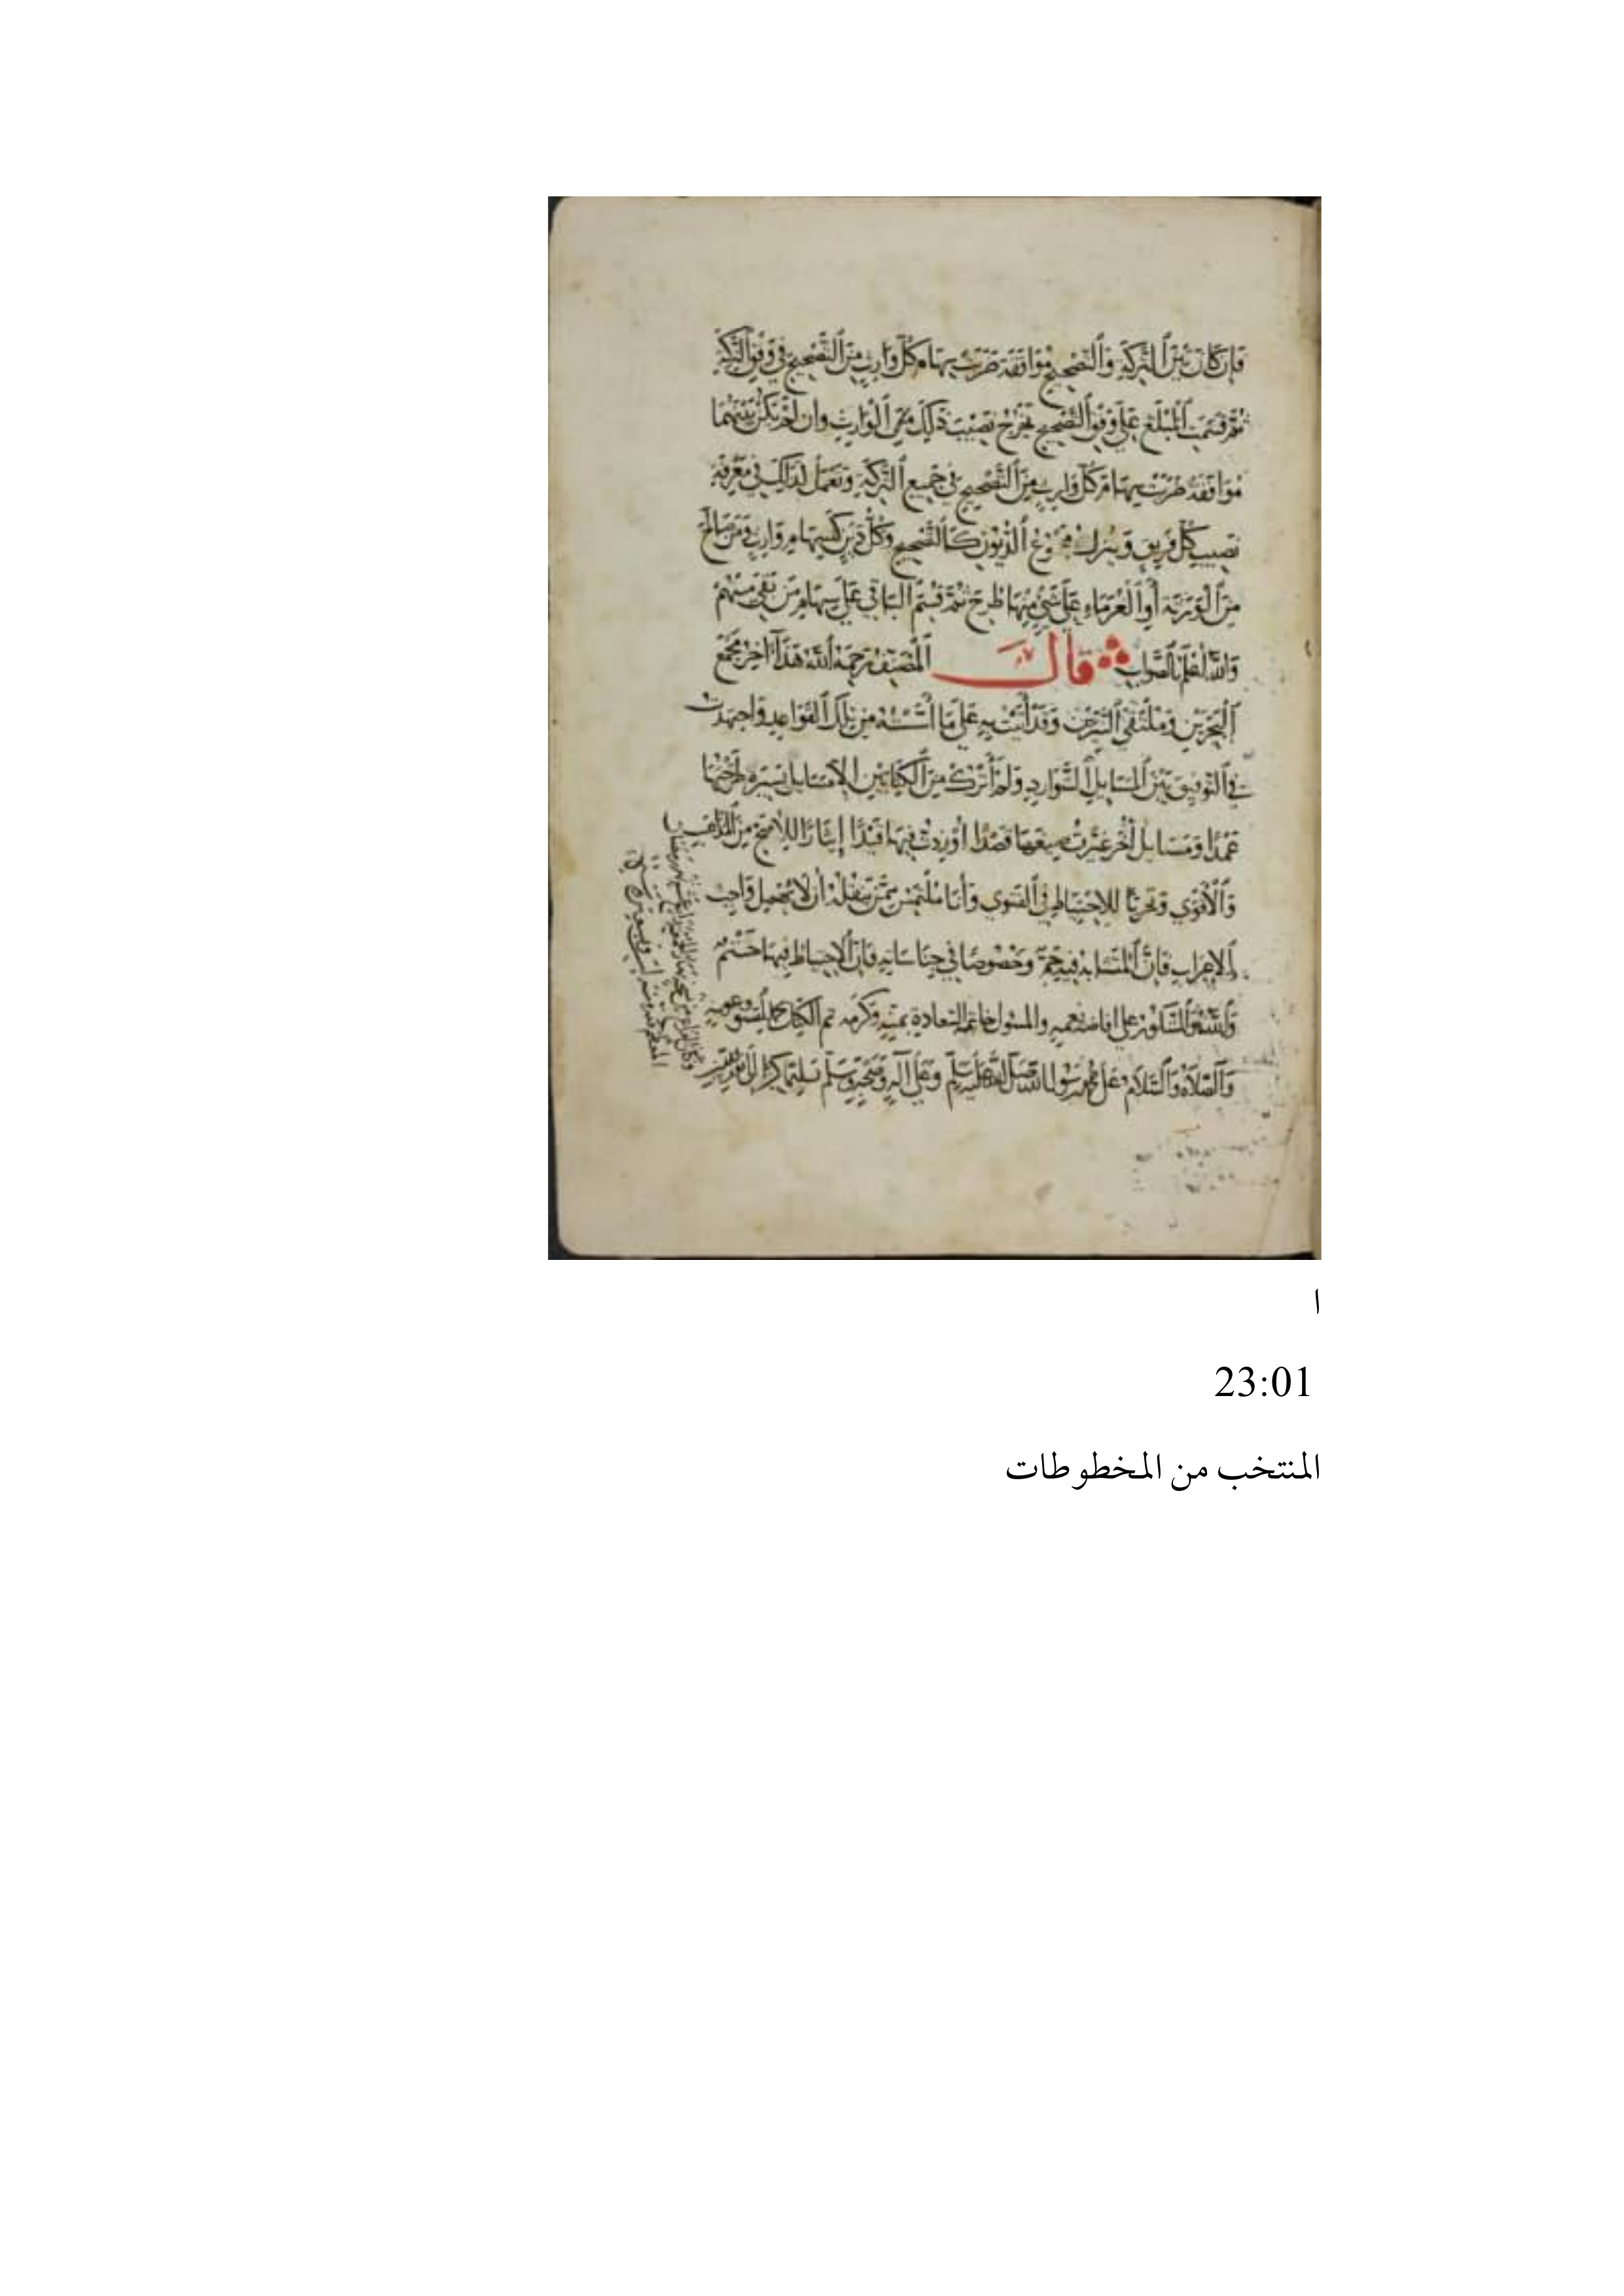 فان كان بين التركة والتصحيح موافقة ضربت سهام كل وارث من التصحيح في وفق التركة
ثم قسمت المبلغ على وفق التصحيح تخرج نصيب ذلك الوارث وان لم تكن بينهما
موافقة ضربت سهام كل وارث من التصحيح في جميع التركة وتعمل كذلك في معرفة
نصيب كل فريق وينزل مجموع الديون كالتصحيح وكل دين كسهام وارث ومن صالح
من الورثة أو الغرماء على شئ منها طرح ثم قسم الباقي على سهام من بقي منهم
والله أعلم بالصواب قال المصنف رحمه الله هذا آخر مجمع
البحرين وملتقى النيرين وقد أتيت به على ما أسسته من تلك القواعد واجتهدت
في التوفيق بين المسايل الشوارد ولم أترك من الكتابين الا مسايل يسيرة طرحتها
عمدا ومسايل أخر غيرت صيغها قصدا أوردت فيها قيدا إيثارا للاصح من المذاهب
والأقوى وتحريا للاحتياط في الفتوى وأنا ملتمس ممن ينقله أن لا يخل واجب
الاعراب فان المتشابه فيه جم وخصوصا في جناساته فان الاحتياط فيها حتم
والله المشكور على افاضة نعمه والمسئول خاتمة السعادة بمنه وكرمه تم الكتاب بحمد الله وعونه
والصلاة والسلام على محمد رسول الله صلى الله عليه وسلم وعلى آله وصحبه وسلم تسليما كثيرا الى يوم الدين
وكان الفراغ من
ا
23:01
المنتخب من المخطوطات